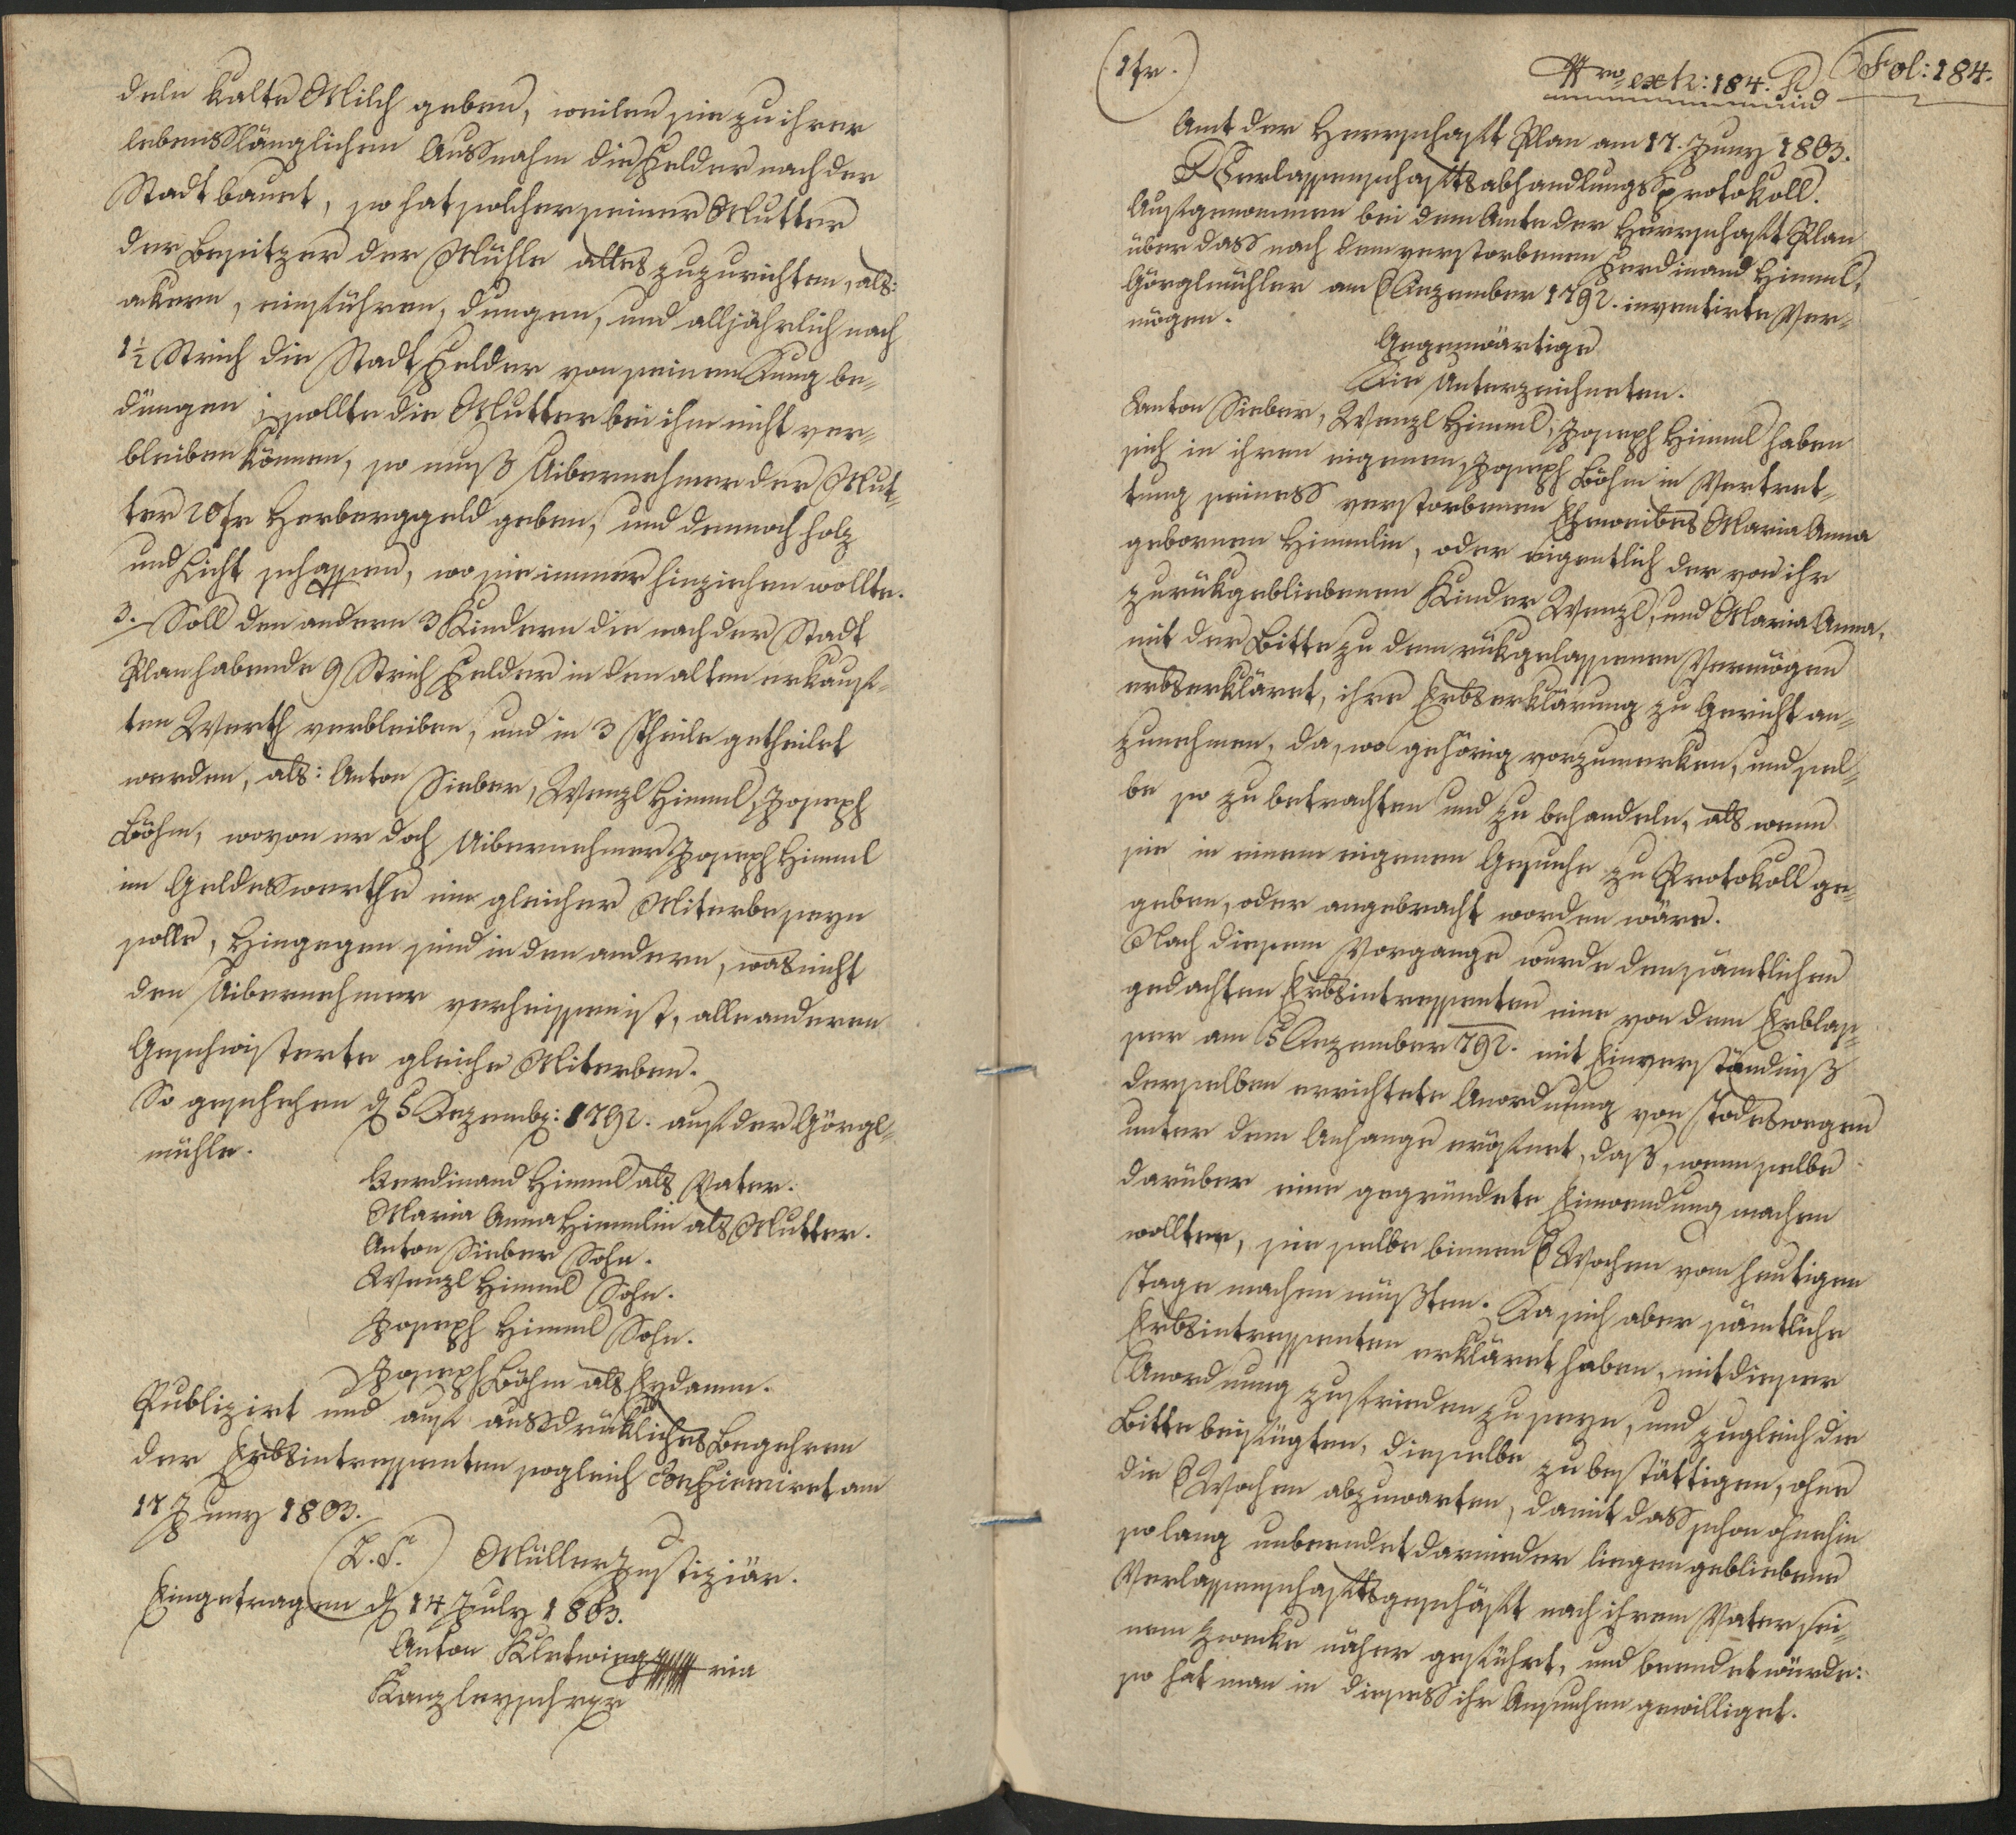 deln kalte Milch geben, weilen sie zu ihrer
lebenslänglichen Ausnahm die Felder nach der
Stadt bauet, so hat solcher seiner Mutter
der Besitzer der Mühle alles zuzurichten, als:
ackern, einführen, dungen, und alljährlich nach
1½ Strich die Stadt Felder von seinem Dung be-
düngen; sollte die Mutter bei ihm nicht ver-
bleiben können, so muß Uibernehmer der Mut-
ter 20 fr Herberggeld geben, und dennoch Holz
und Licht schaffen, wo sie immer hinziehen wollte.
3. Soll den andern 3 Kindern die nach der Stadt
Plan habende 9 Strich Felder in den alten erkauf-
ten Werth verbleiben, und in 3 Theile getheilet
werden, als: Anton Sieber, Wenzl Himml, Joseph
Böhm, wovon er doch Uibernehmer Joseph Himml
im Geldeswerthe ein gleicher Miterbe seyn
solle, Hingegen sind in den andern, was nicht
den Uibernehmer verheissen ist, alle anderen
Geschwisterte gleiche Miterben.
So geschehen d 5 Dezemb: 1792. auf der Görgl-
mühle.
Ferdinand Himml als Vater.
Maria Anna Himmlin als Mutter.
Anton Sieber Sohn.
Wenzl Himml Sohn.
Joseph Himml Sohn.
Joseph Böhm als Eydamm.
Publizirt und auf ausdrükliches Begehren
der Erbsintressenten sogleich Confirmiret am
17 Juny 1803.
(L. S.) Müller Justiziär.
Eingetragen d 14 July 1803.
Anton
(1fr.) Nro exh: 184. Fol: 184.
Amt der Herrschaft Plan am 17. Juny 1803.
Verlassenschaftsabhandlungs Protokoll.
Aufgenommen bei dem Amte der Herrschaft Plan
über dass nach dem verstorbenen Ferdinand Himml,
Görglmühler am 6 Dezember 1792. inventirte Ver-
mögen.
Gegenwärtige
Die Unterzeichneten.
Anton Sieber, Wenzl Himml, Joseph Himml haben
sich in ihren eigenen, Joseph Böhm in Vertret-
tung seiness verstorbenen Eheweibes Maria Anna
gebornen Himmlin, oder eigentlich der von ihr
zurükgebliebenen Kinder Wenzl, und Maria Anna,
mit der Bitte zu dem rükgelassenen Vermögen
erbserkläret, ihre Erbserklärung zu Gericht an-
zunehmen, da, wo gehörig vorzumerken, und sel-
be so zu betrachten und zu behandeln, als wenn
sie in einem eigenen Gesuche zu Protokoll ge-
geben, oder angebracht worden wäre.
Nach diesem Vorgange wurde den sämtlichen
gedachten Erbsintressenten eine von dem Erblas-
ser am 5 Dezember 792. mit Einverständniß
derselben errichtete Anordnung von Todeswegen
unter dem Anhange eröfnet, daß, wenn selbe
darüber eine gegründete Einwendung machen
wollten, sie selbe binnen 6 Wochen vom heutigen
Tage machen müßten. Da sich aber sämtliche
Erbsintressenten erkläret haben, mit dieser
Anordnung zufrieden zu seyn, und zugleich die
Bitte beifügten, dieselbe zu bestättigen, ohne
die 6 Wochen abzuwarten, damit dass schon ohnehin
so lang unbeendet darnieder liegen gebliebene
Verlassenschaftsgeschäft nach ihrem Vater sei-
nem Zwecke näher geführt, und beendet würde:
so hat man in diesess ihr Ansuchen gewilliget.